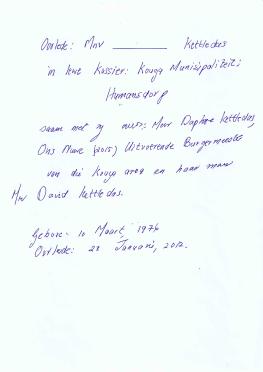 Oorlede: Mnr ________ Kettledas
in lewe Kassier: Kouga Munisipaliteit:
Humansdorp
saam met sy niggie: Mnr Daphne Kettledas,
Ons Nuwe (2015) Uitvoerende Burgermeester
van die Kouga area en haar man
Mnr David Kettledas.
Gebore - 10 Maart, 1976
Oorlede: 28 Januarie, 2012.